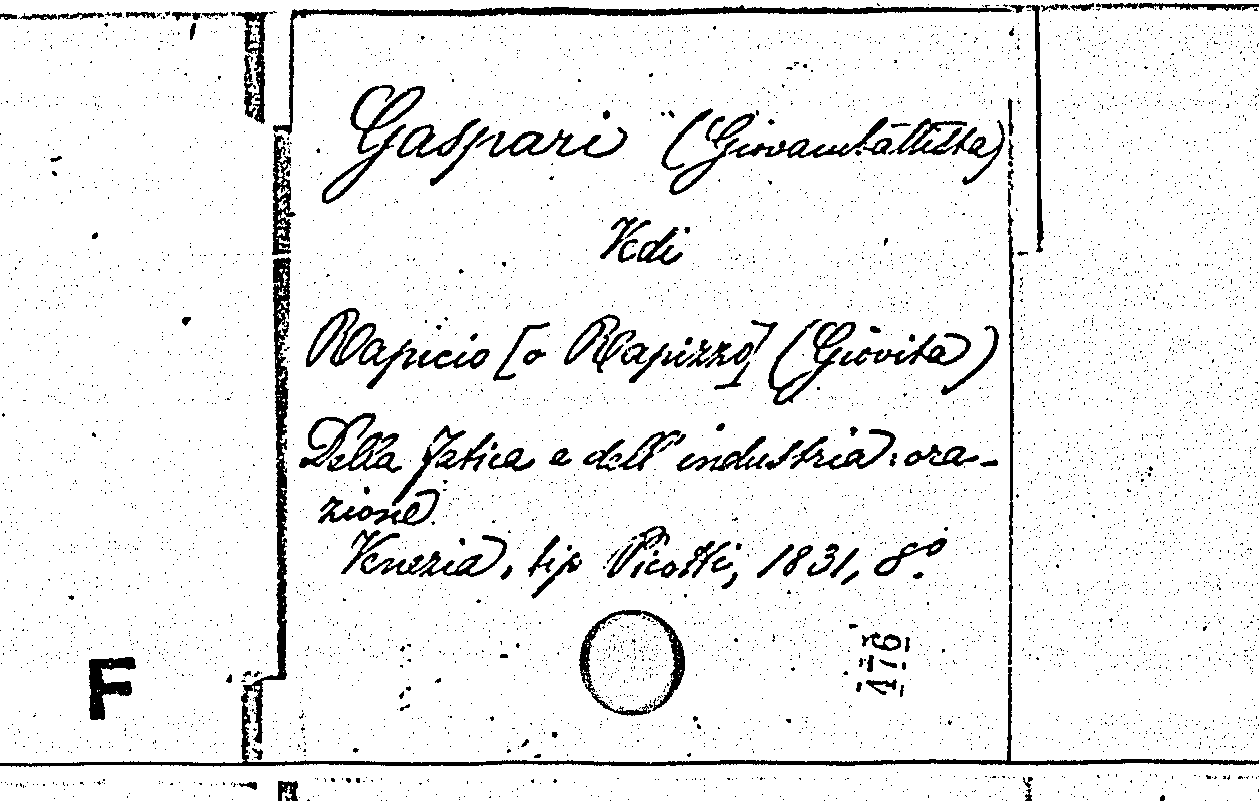 Gaspari (Giovambattista)
Vedi
Rapicio [o Rapizzo] (Giovita)
Della fatica e dell'industria: ora-
zione
Venezia, tip Picotti, 1831, 8º.
176
F